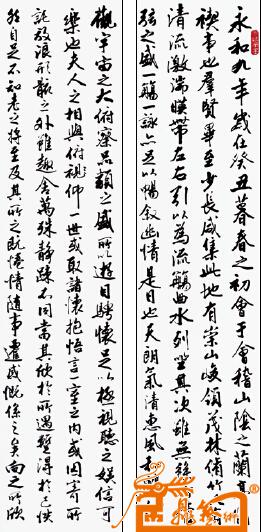 永和九年歲在癸丑暮春之初會于會稽山陰之蘭亭
禊事也群賢畢至少長咸集此地有崇山峻領茂林脩竹
清流激湍暎帶左右引以為流觴曲水列坐其次雖無絲
弦之盛一觴一詠亦足以暢敘幽情是日也天朗氣清惠風和
觀宇宙之大俯察品類之盛所以遊目騁懷足以極視聽之娛信可
樂也夫人之相與俯仰一世或取諸懷抱悟言一室之內或因寄所
託放浪形骸之外雖趣舍萬殊靜躁不同當其欣於所遇暫得於己快
然自足不知老之將至及其所之既惓情隨事遷感慨係之矣向之所欣